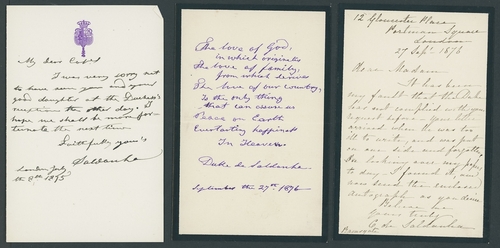 My dear Cov'd
I was very sorry not
to have seen you and your
good daughter at the Duchess's
reception the other day. I
hope we shall be more for-
tunate the next time
Faithfully yours
Saldanha
London July
the 8th 1875
The love of God,
in which originates
The love of family,
from which derives
The love of our country,
Is the only thing
that can assure us
Peace on Earth
Everlasting happiness
In Heaven
Duke de Saldanha
September the 27th 1876
12 Gloucester Place
Portman Square
London
27 Sept. 1876
Dear Madam
It has been
my fault that the Duke
has not complied with your
request before your letter
arrived when he was too
ill to write, and was put
on one side and forgotten
On looking over my papers
to day, I found it, and
now send the enclosed
autograph as you desire
Believe me
Yours truly
de Saldanha